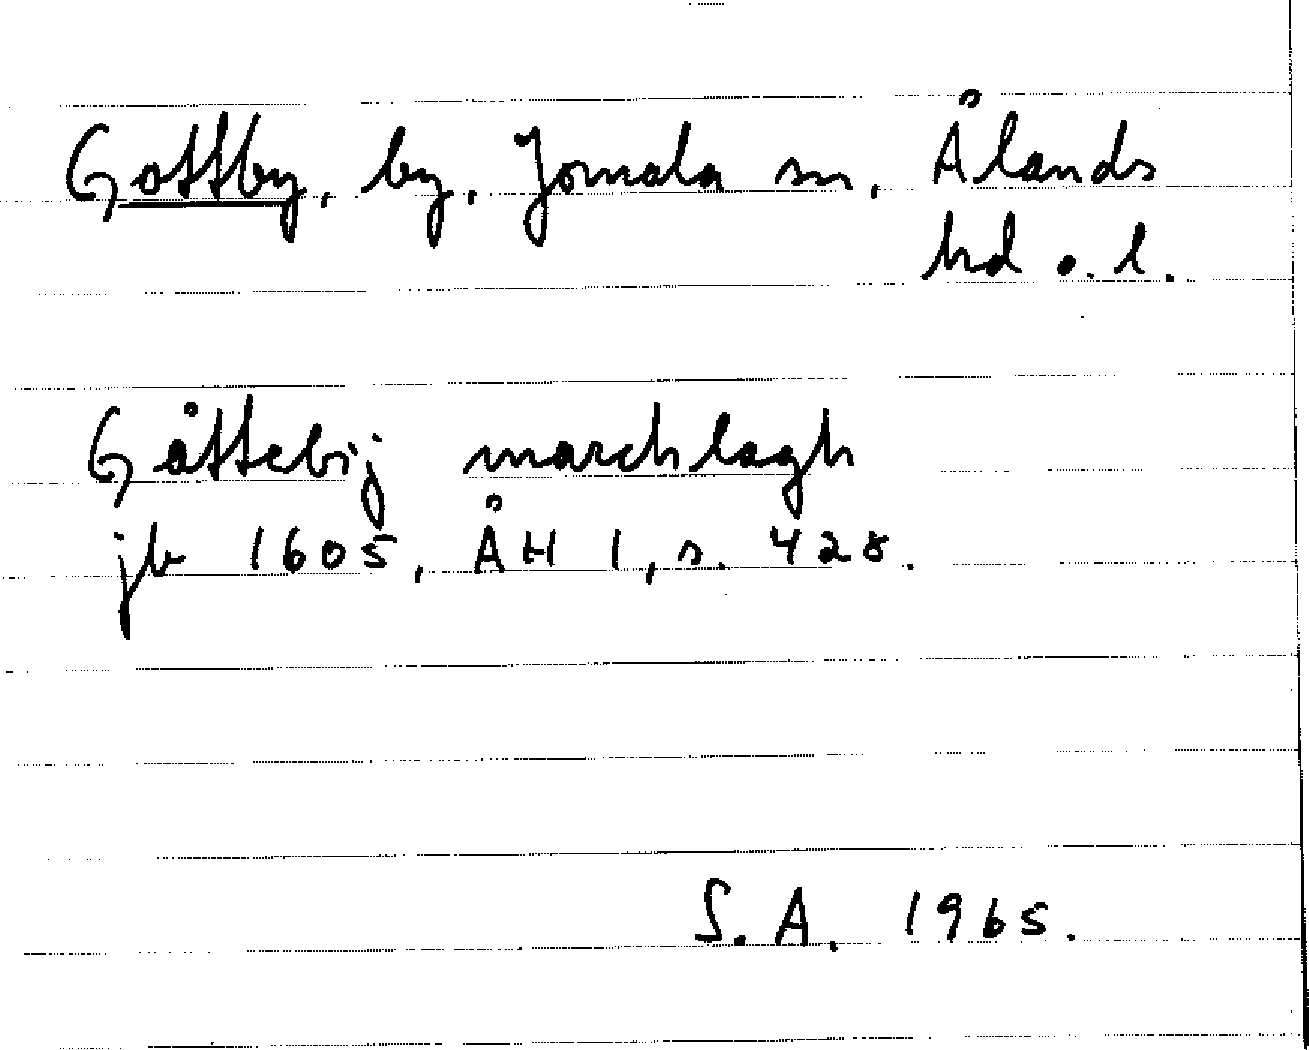 Gottby, by, Jomala sn, Ålands
hd o. l.
Gåttebij marchlagh
jb 1605, ÅH 1, s. 428.
S. A. 1965.